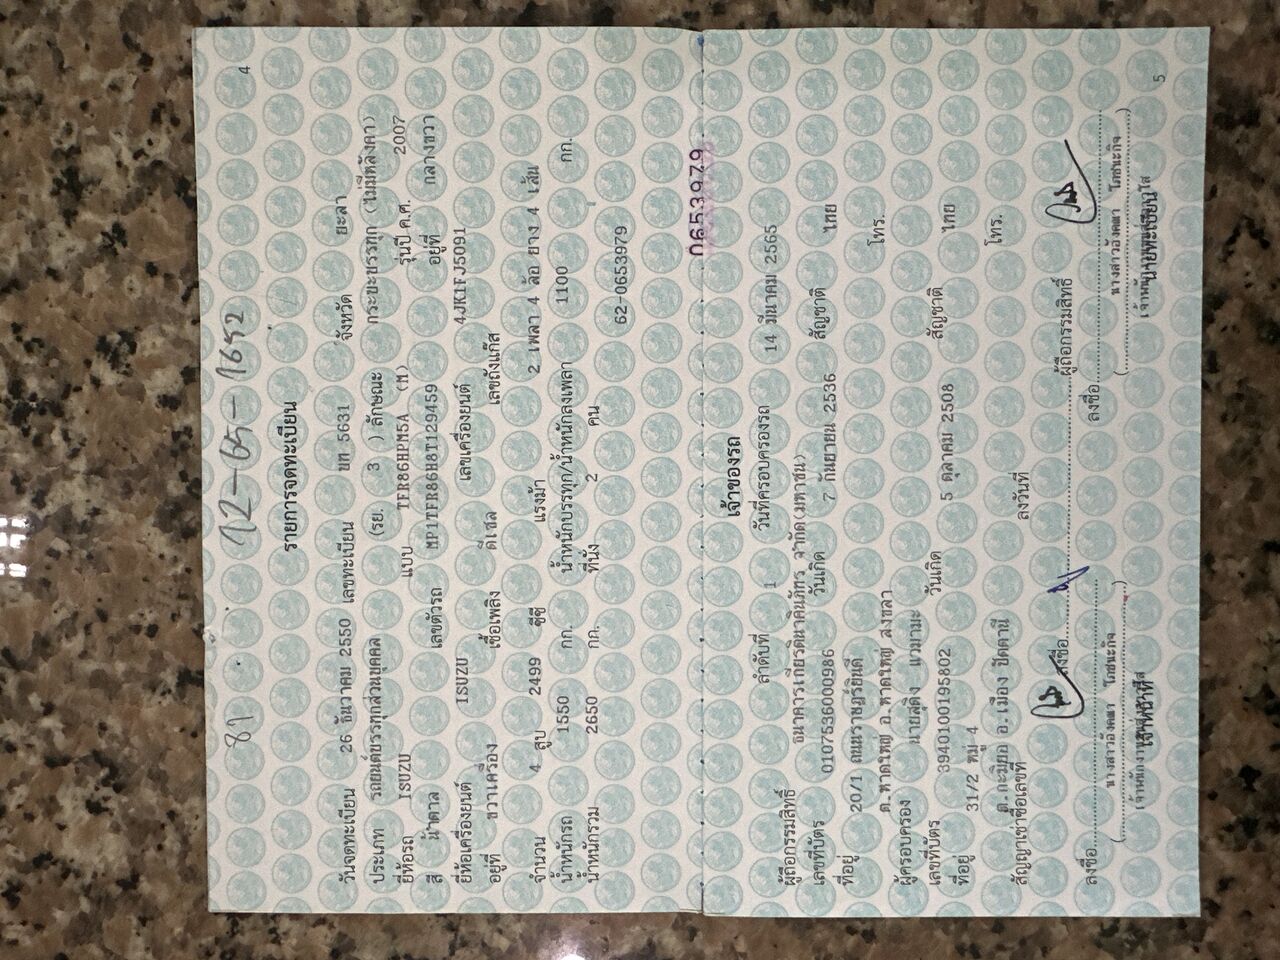 4
87
72-65-1652
รายการจดทะเบียน
วันจดทะเบียน 26 ธันวาคม 2550 เลขทะเบียน บท 5631 จังหวัด ยะลา
ประเภท รถยนต์บรรทุกส่วนบุคคล (รย. 3 ) ลักษณะ กระบะบรรทุก (ไม่มีหลังคา)
ยี่ห้อรถ ISUZU แบบ TFR86HPM5A (M) รุ่นปี ค.ศ. 2007
สี น้ำตาล เลขตัวรถ MP1TFR86H8T129459 อยู่ที่ กลางขวา
ยี่ห้อเครื่องยนต์ ISUZU เลขเครื่องยนต์ 4JK1FJ5091
อยู่ที่ ขวาเครื่อง เชื้อเพลิง ดีเซล เลขถังแก๊ส
จำนวน 4 สูบ 2499 ซีซี แรงม้า 2 เพลา 4 ล้อ ยาง 4 เส้น
น้ำหนักรถ 1550 กก. น้ำหนักบรรทุก/น้ำหนักลงเพลา 1100 กก.
น้ำหนักรวม 2650 กก. ที่นั่ง 2 คน 62-0653979
0653979
เจ้าของรถ
ลำดับที่ 1 วันที่ครอบครองรถ 14 มีนาคม 2565
ผู้ถือกรรมสิทธิ์ ธนาคารเกียรตินาคินภัทร จำกัด(มหาชน)
เลขที่บัตร 0107536000986 วันเกิด 7 กันยายน 2536 สัญชาติ ไทย
ที่อยู่ 20/1 ถนนราษฎร์ยินดี โทร.
ต.หาดใหญ่ อ.หาดใหญ่ สงขลา
ผู้ครอบครอง นายสุดิง แวมามะ
เลขที่บัตร 3940100195802 วันเกิด 5 ตุลาคม 2508 สัญชาติ ไทย
ที่อยู่ 31/2 หมู่ 4 โทร.
ต.กะมิยอ อ.เมือง ปัตตานี
สัญญาเช่าซื้อเลขที่ ลงวันที่
ลงชื่อ ผู้ถือกรรมสิทธิ์
ลงชื่อ ลงชื่อ
เจ้าหน้าที่ นายทะเบียน
5